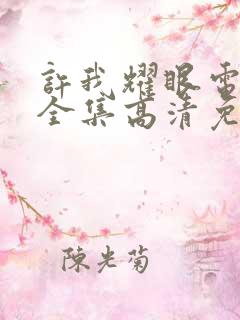 許我耀眼電
全集高清免
陳光菊